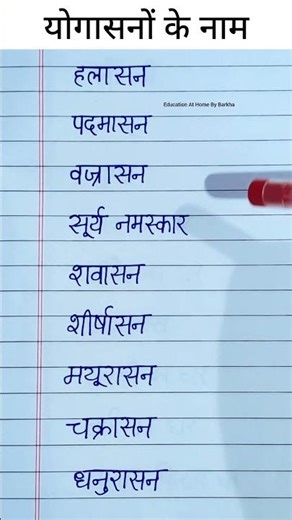 योगासनों के नाम
हलासन
Education At Home By Barkha
पदमासन
वज्रासन
सूर्य नमस्कार
शवासन
शीर्षासन
मयूरासन
चक्रासन
धनुरासन